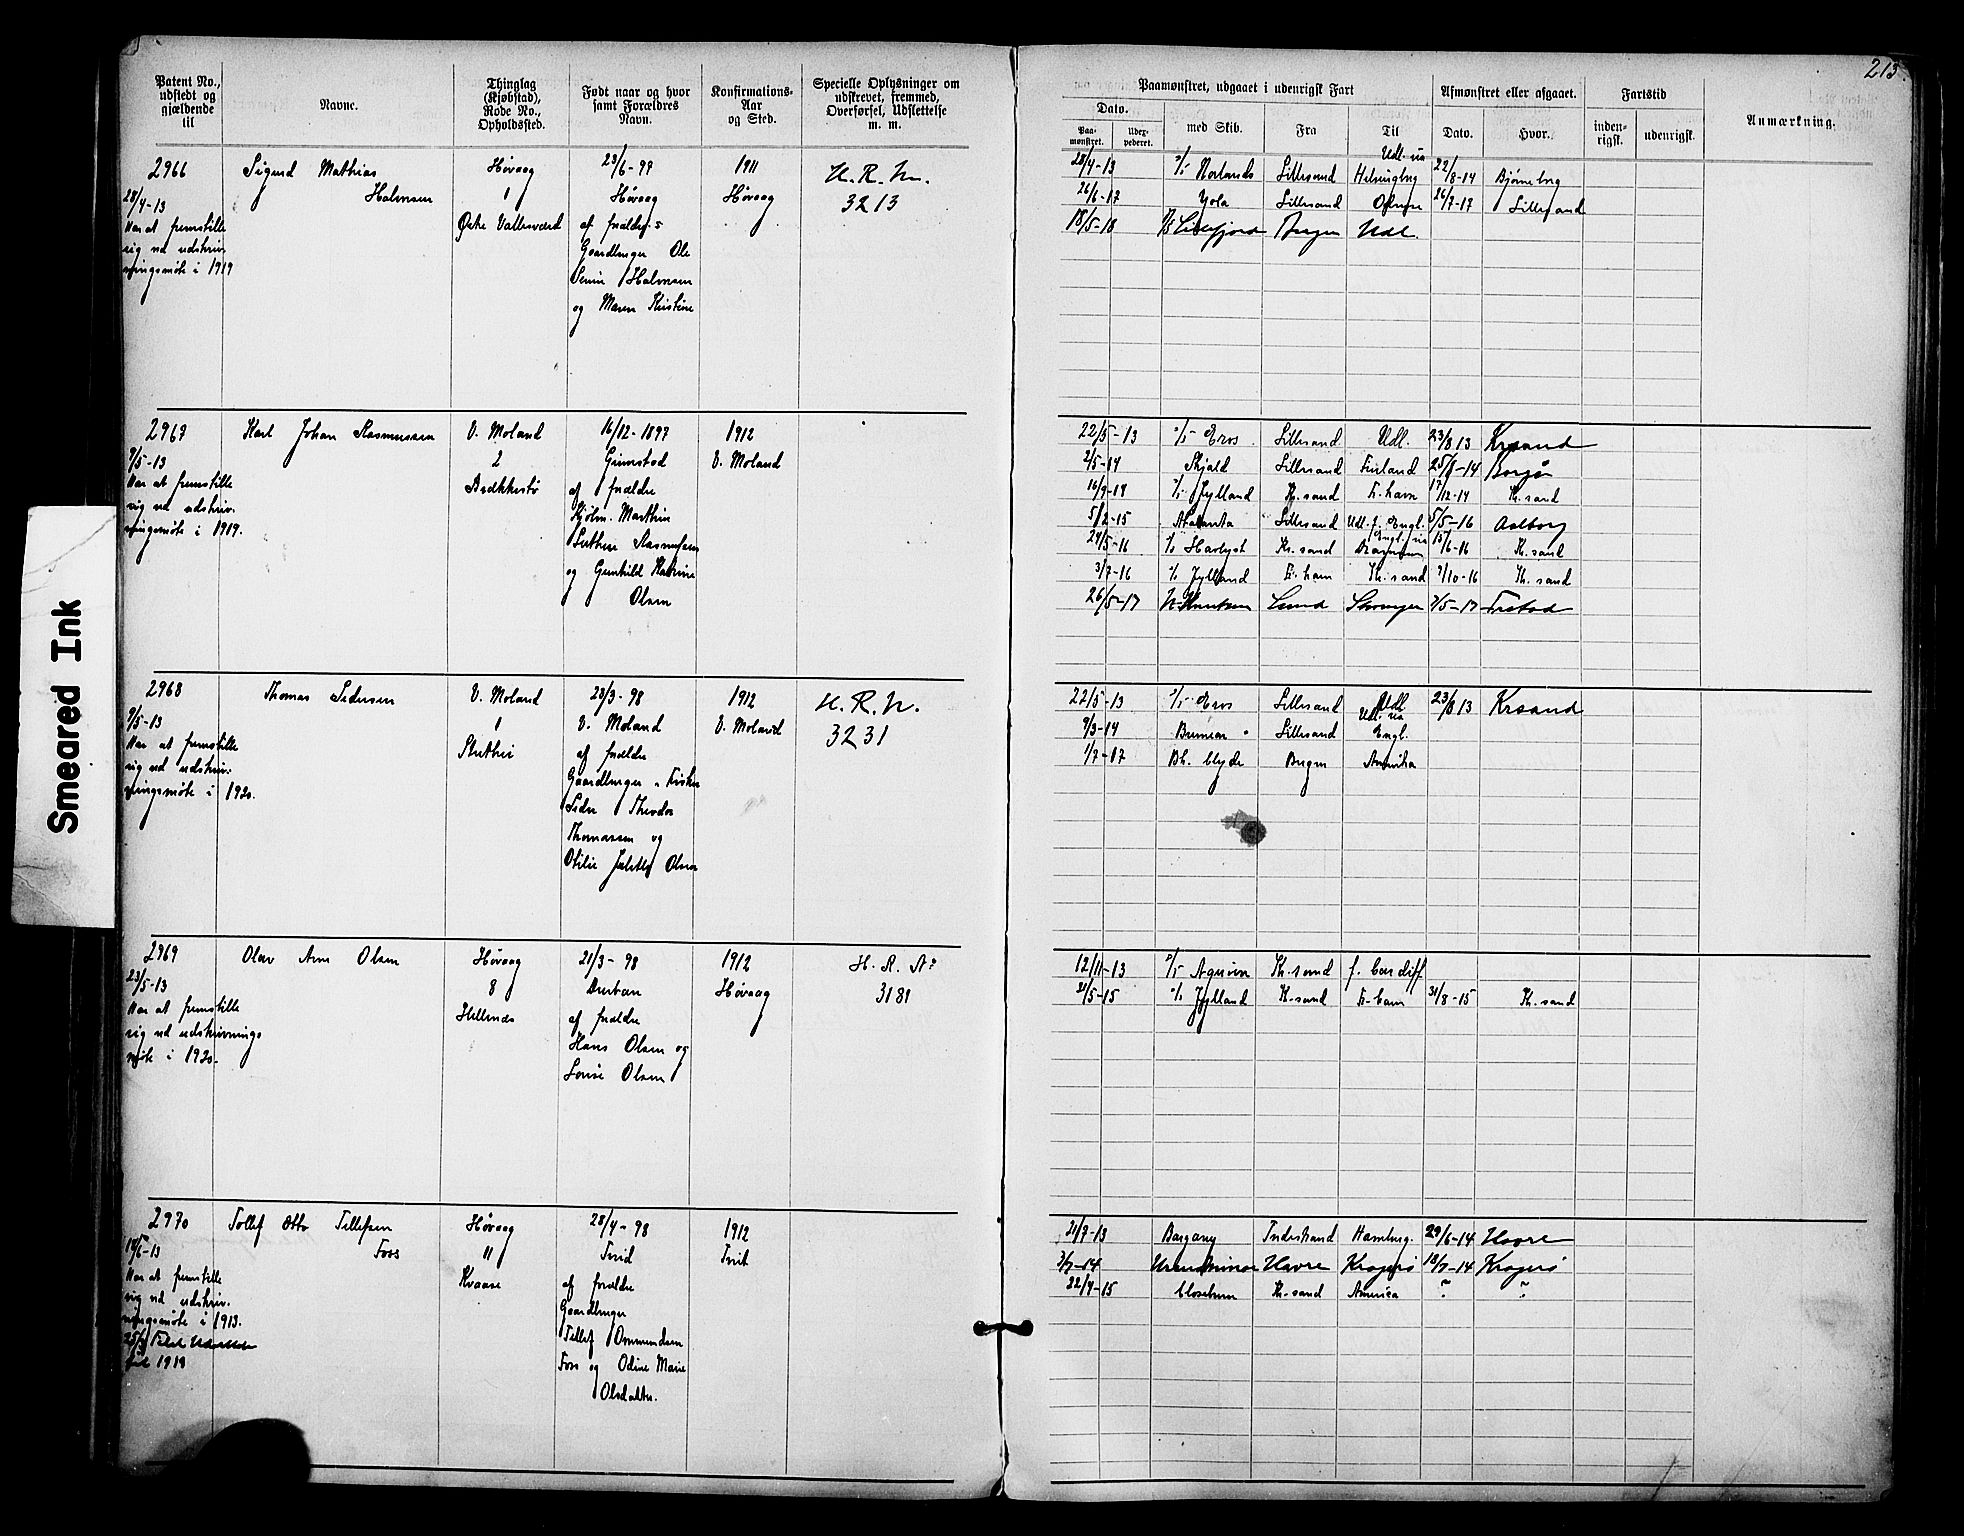 213.
Patent No., udstedt og gjældende til
Navne.
Thinglag (Kjøbstad), Rode No., Opholdssted.
Født naar og hvor samt Forældres Navn.
Konfirmations-Aar og Sted.
Specielle Oplysninger om udskrevet, fremmed, Overførsel, Udslettelse m. m.
Paamønstret, udgaaet i udenrigsk Fart
Afmønstret eller afgaaet.
Fartstid
Anmærkning.
Dato.
Paa-mønstret.
Uder-pederet.
med Skib.
Fra
Til
Dato.
Hvor.
inden-rigsk.
udenrigsk.
2966
28/4-13
Har at fremstille
sig ved udskriv
ningsmøte i 1919
Sigurd Mathias
Halvorsen
Høvaag
1
Østre Vallesværd
23/6-99
Høvaag
af forældre
Gaardbruger Ole
Halvorsen
og Maren Kristine
1911
Høvaag
U. R. N.
3213
28/4-13 Norlands Lillesand Udl. via Helsingborg 22/8-14 Bjørneborg
26/6-17 Yola Lillesand 26/7-17 Lillesand
18/5-18 Bergen Udl.
2967
7/5-13
Har at fremstille
sig ved udskriv.
ningsmøte i 1919.
Karl Johan Rasmussen
V. Moland
2
Brækkestø
16/12-1897
Grimstad
af forældre
Marthin
Luther Rasmussen
og Gunhild Katrine
Olsen
1912
V. Moland
22/5-13 Eros Lillesand Udl. 23/8 13 Krsand
2/5-14 Skjold Lillesand Finland 25/8-14 Borgå
16/9-14 Jylland K.sand Fr.havn 17/12-14 K.sand
5/2-15 Atalanta Lillesand Udl. f. Engl. 5/5-16 Aalborg
24/5-16 Havlyst Kr.sand Engl. via 15/6-16 K.sand
3/7-16 Jylland Fr.havn Kr.sand 9/10-16 Kr.sand
26/5-17 Stavanger
2968
9/5-13
Har at fremstille
sig ved udskriv.
ningsmøte i 1920.
Thomas Pedersen
V. Moland
1
23/3-98
V. Moland
af forældre
Gaardbruger Fisker
Peder Theodor
Thomassen og
Otilie Olsen
1912
V. Moland
U. R. N.
3231
22/5-13 Eros Lillesand Udl 23/8 13 Krsand
9/3-14 Lillesand Udl. via Engl.
1/7-17 Bk. Clyde Bergen Amerika
2969
23/5-13
Har at fremstille
sig ved udskrivnings
møte i 1920.
Olav Arne Olsen
Høvaag
8
Hellenæs
21/3-98
Durban
af forældre
Hans Olsen og
Louise Olsen
1912
Høvaag
H. R. N?
3181
12/11-13 Kr.sand f. Cardiff
21/5-15 Jylland K.sand Fr.havn 31/8-15 Kr.sand
2970
14/6-13
Har at fremstille
sig ved udskriv.
ningsmøte i 1913.
til 1919
Tollef Otto Tellefsen
Foss
Høvaag
11
Kvaase
28/4-98
Tveid
af forældre
Gaardbruger
Tellef Ommundsen
Foss og Odine Marie
Olsdatter.
1912
Tveit
21/7-13 Bargany Hamburg. 29/6-14 Havre
3/7-14 Havre Kragerø 18/7-14 Kragerø
22/4-15 Closeburn Kr.sand America ? ?
Smeared Ink